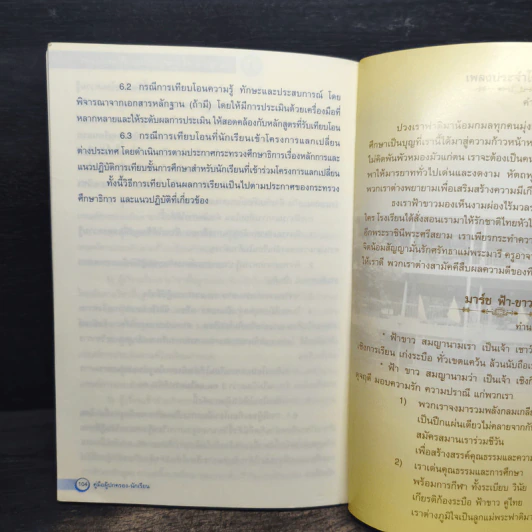 6.2 กรณีการเทียบโอนความรู้ ทักษะและประสบการณ์ โดย
พิจารณาจากเอกสารหลักฐาน (ถ้ามี) โดยให้มีการประเมินด้วยเครื่องมือที่
หลากหลายและให้ระดับผลการประเมิน ให้สอดคล้องกับหลักสูตรที่รับเทียบโอน
6.3 กรณีการเทียบโอนที่นักเรียนเข้าโครงการแลกเปลี่ยน
ต่างประเทศ โดยดำเนินการตามประกาศกระทรวงศึกษาธิการเรื่องหลักการและ
แนวปฏิบัติการเทียบชั้นการศึกษาสำหรับนักเรียนที่เข้าร่วมโครงการแลกเปลี่ยน
ทั้งนี้วิธีการเทียบโอนผลการเรียนเป็นไปตามประกาศของกระทรวง
ศึกษาธิการ และแนวปฏิบัติที่เกี่ยวข้อง
104 คู่มือผู้ปกครอง-นักเรียน
เพลงประจำโ
ปวงเราฟาติมาน้อมกมลทุกคนมุ่ง
ศึกษาเป็นบุญที่เรานี้ได้มาสู่ความก้าวหน้าท
ไม่คิดพ้นพัวหมองมัวแก่ตน เราจะต้องเป็นคน
พาให้มารยาททั่วไปเด่นและงดงาม
พวกเราต่างพยายามเพื่อเสริมสร้างความมีเกี
ธงเราฟ้าขาวมองเห็นงามผ่องไร้มวล
ใคร โรงเรียนได้สั่งสอนเรามาให้รักชาติไทยหัวใ
อีกพระราชินีพระศรีสยาม เราเพียรกระทำคว
จิตน้อมสัญญามั่นรักศรัทธาแม่พระมารี ครูอาจ
ให้เราดี พวกเราต่างสามัคคีสืบผลความดีของที่
มาร์ช ฟ้า-ขาว
ท่าน
* ฟ้าขาว สมญานามเรา เป็นเจ้า เชาว์
เชิงการเรียน เก่งระบือ ทั่วเขตแคว้น ล้วนนับถือเ
* ฟ้า ขาว สมญานามว่า เป็นเจ้า เชิงกี
ดุจฤดี มอบความรัก ความปราณี แก่พวกเรา
1) พวกเราจงมารวมพลังกลมเกลี
เป็นปึกแผ่นเดียวไม่คลายจากกั
สมัครสมานเราร่วมชีวัน
เพื่อสร้างสรรค์คุณธรรมและควา
2) เราเด่นคุณธรรมและการศึกษา
พร้อมการกีฬา ทั้งระเบียบ วินัย
เกียรติก้องระบือ ฟ้าขาว คู่ไทย
เราต่างภูมิใจเป็นลูกแม่พระฟาติมา